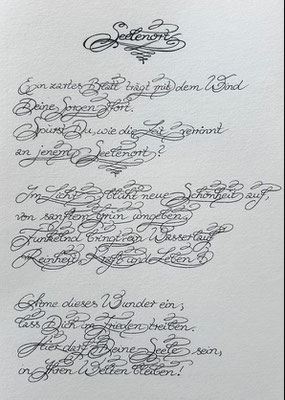 Seelenort
Ein zartes Blatt trägt mit dem Wind
Deine Sorgen fort.
Spürst Du, wie die Zeit verrinnt
an jenem Seelenort?
Im Licht blüht neue Schönheit auf,
von sanftem Grün umgeben.
Funkelnd bringt ein Wasserlauf
Reinheit, Kraft und Leben.
Atme dieses Wunder ein,
lass Dich im Frieden treiben.
Hier darf Deine Seele sein,
in Ihren Welten bleiben!